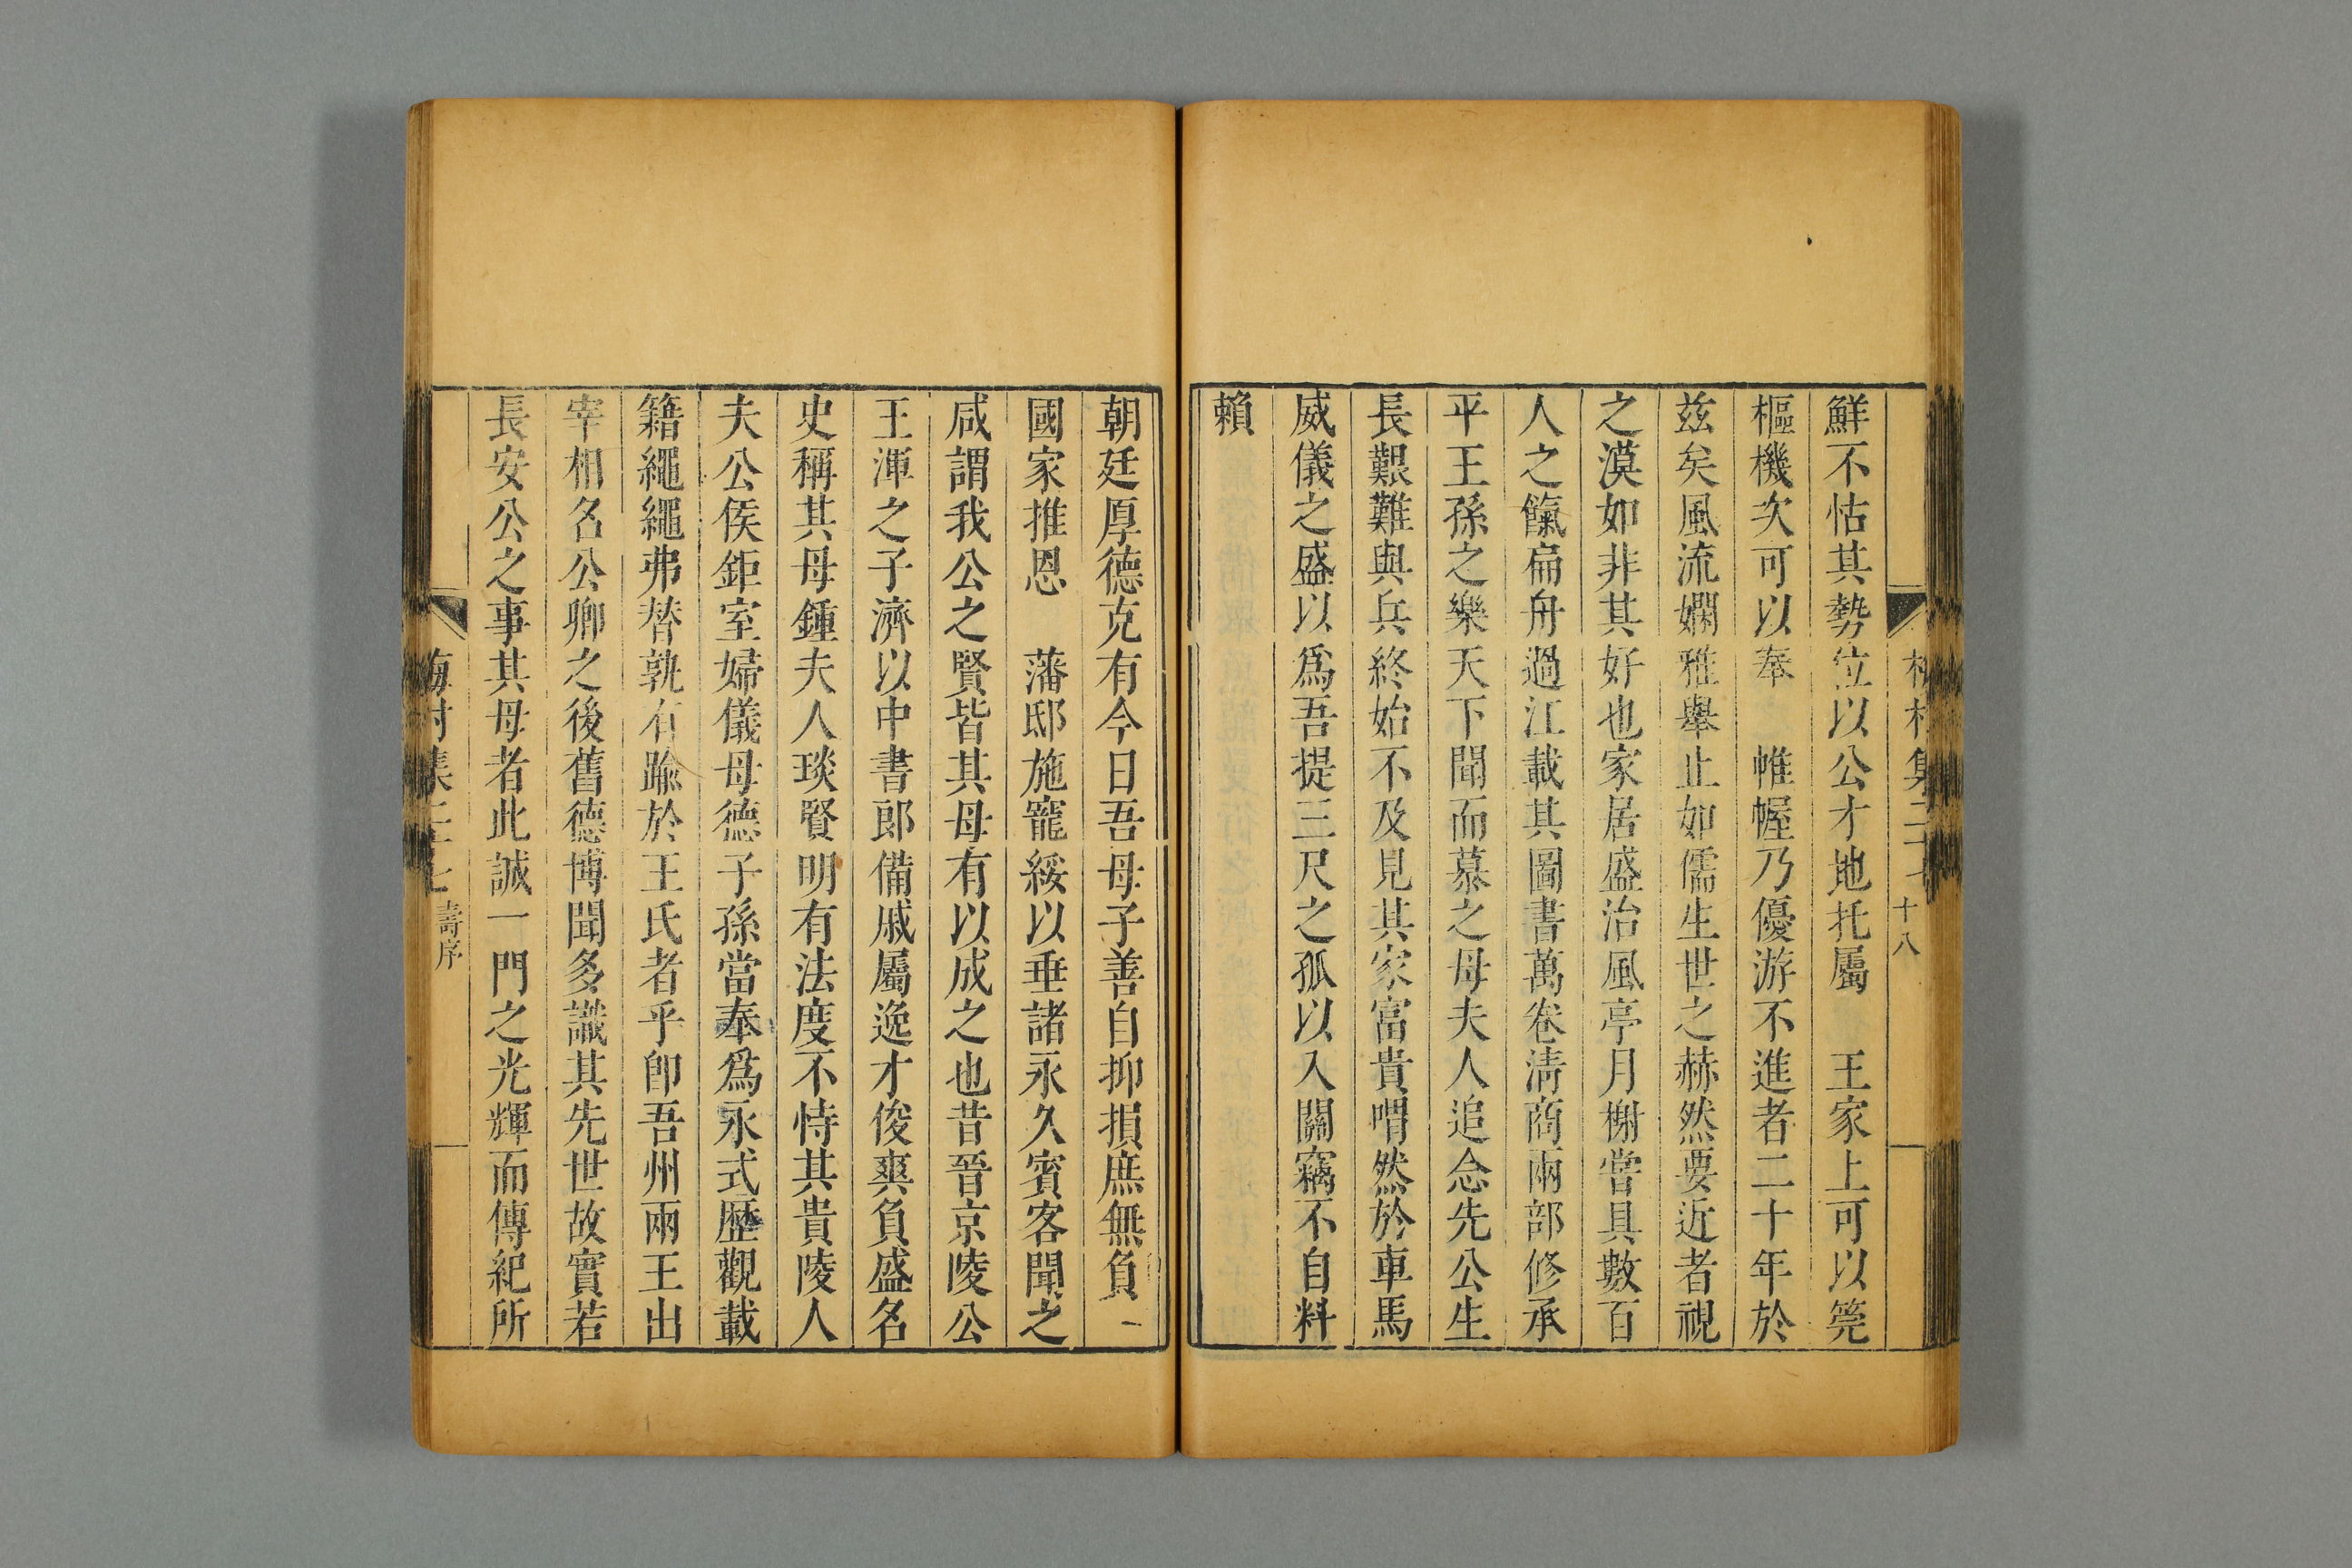 十八
鮮不怙其勢位以公才地托屬　王家上可以筦
樞機次可以奉　帷幄乃優游不進者二十年於
茲矣風流嫻雅舉止如儒生世之赫然要近者視
之漠如非其好也家居盛治風亭月榭嘗具數百
人之餼扁舟過江載其圖書萬卷淸商兩部修承
平王孫之樂天下聞而慕之母夫人追念先公生
長艱難與兵終始不及見其家富貴喟然於車馬
威儀之盛以爲吾提三尺之孤以入關竊不自料
賴
朝廷厚德克有今日吾母子善自抑損庶無負
國家推恩　藩邸施寵綏以垂諸永久賓客聞之
咸謂我公之賢皆其母有以成之也昔晉京陵公
王渾之子濟以中書郎備戚屬逸才俊爽負盛名
史稱其母鍾夫人琰賢明有法度不恃其貴陵人
夫公侯鉅室婦儀母德子孫當奉爲永式歷觀載
籍繩繩弗替孰有踰於王氏者乎卽吾州兩王出
宰相名公卿之後舊德博聞多識其先世故實若
長安公之事其母者此誠一門之光輝而傳紀所
梅村集二十七 壽序